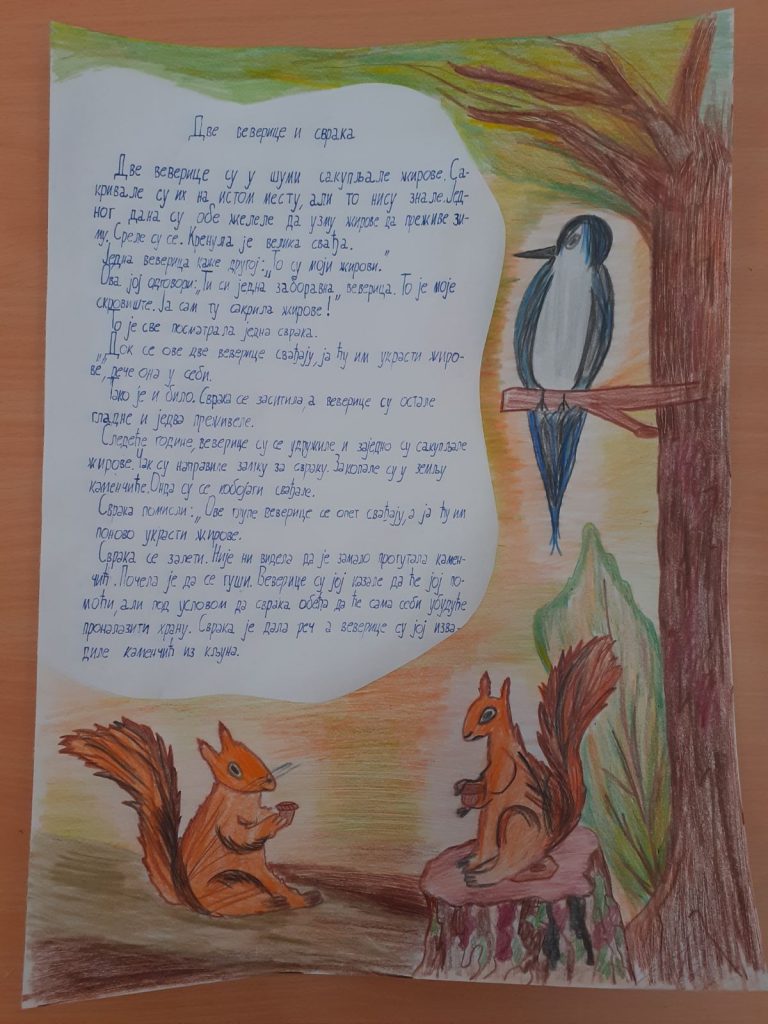 Две веверице и сврака
Две веверице су у шуми сакупљале жирове. Са-
кривале су их на истом месту, али то нису знале. Јед-
ног дана су обе желеле да узму жирове да преживе зи-
му. Среле су се. Кренула је велика свађа.
Једна веверица каже другој: „То су моји жирови.”
Ова јој одговори: „Ти си једна заборавна веверица. То је моје
скровиште. Ја сам ту сакрила жирове!
То је све посматрала једна сврака.
„Док се ове две веверице свађају, ја ћу им украсти жиро-
ве”, рече она у себи.
Тако је и било. Сврака се заситила, а веверице су остале
гладне и једва преживеле.
Следеће године, веверице су се удружиле и заједно су сакупљале
жирове. Чак су направиле замку за свраку. Закопале су у земљу
каменчиће. Онда су се кобојаги свађале.
Сврака помисли: „Ове глупе веверице се опет свађају, а ја ћу им
поново украсти жирове.
Сврака се залети. Није ни видела да је замало прогутала камен-
чић. Почела је да се гуши. Веверице су јој казале да ће јој по-
моћи, али под условом да сврака обећа да ће сама себи убудуће
проналазити храну. Сврака је дала реч а веверице су јој изва-
диле каменчић из кљуна.